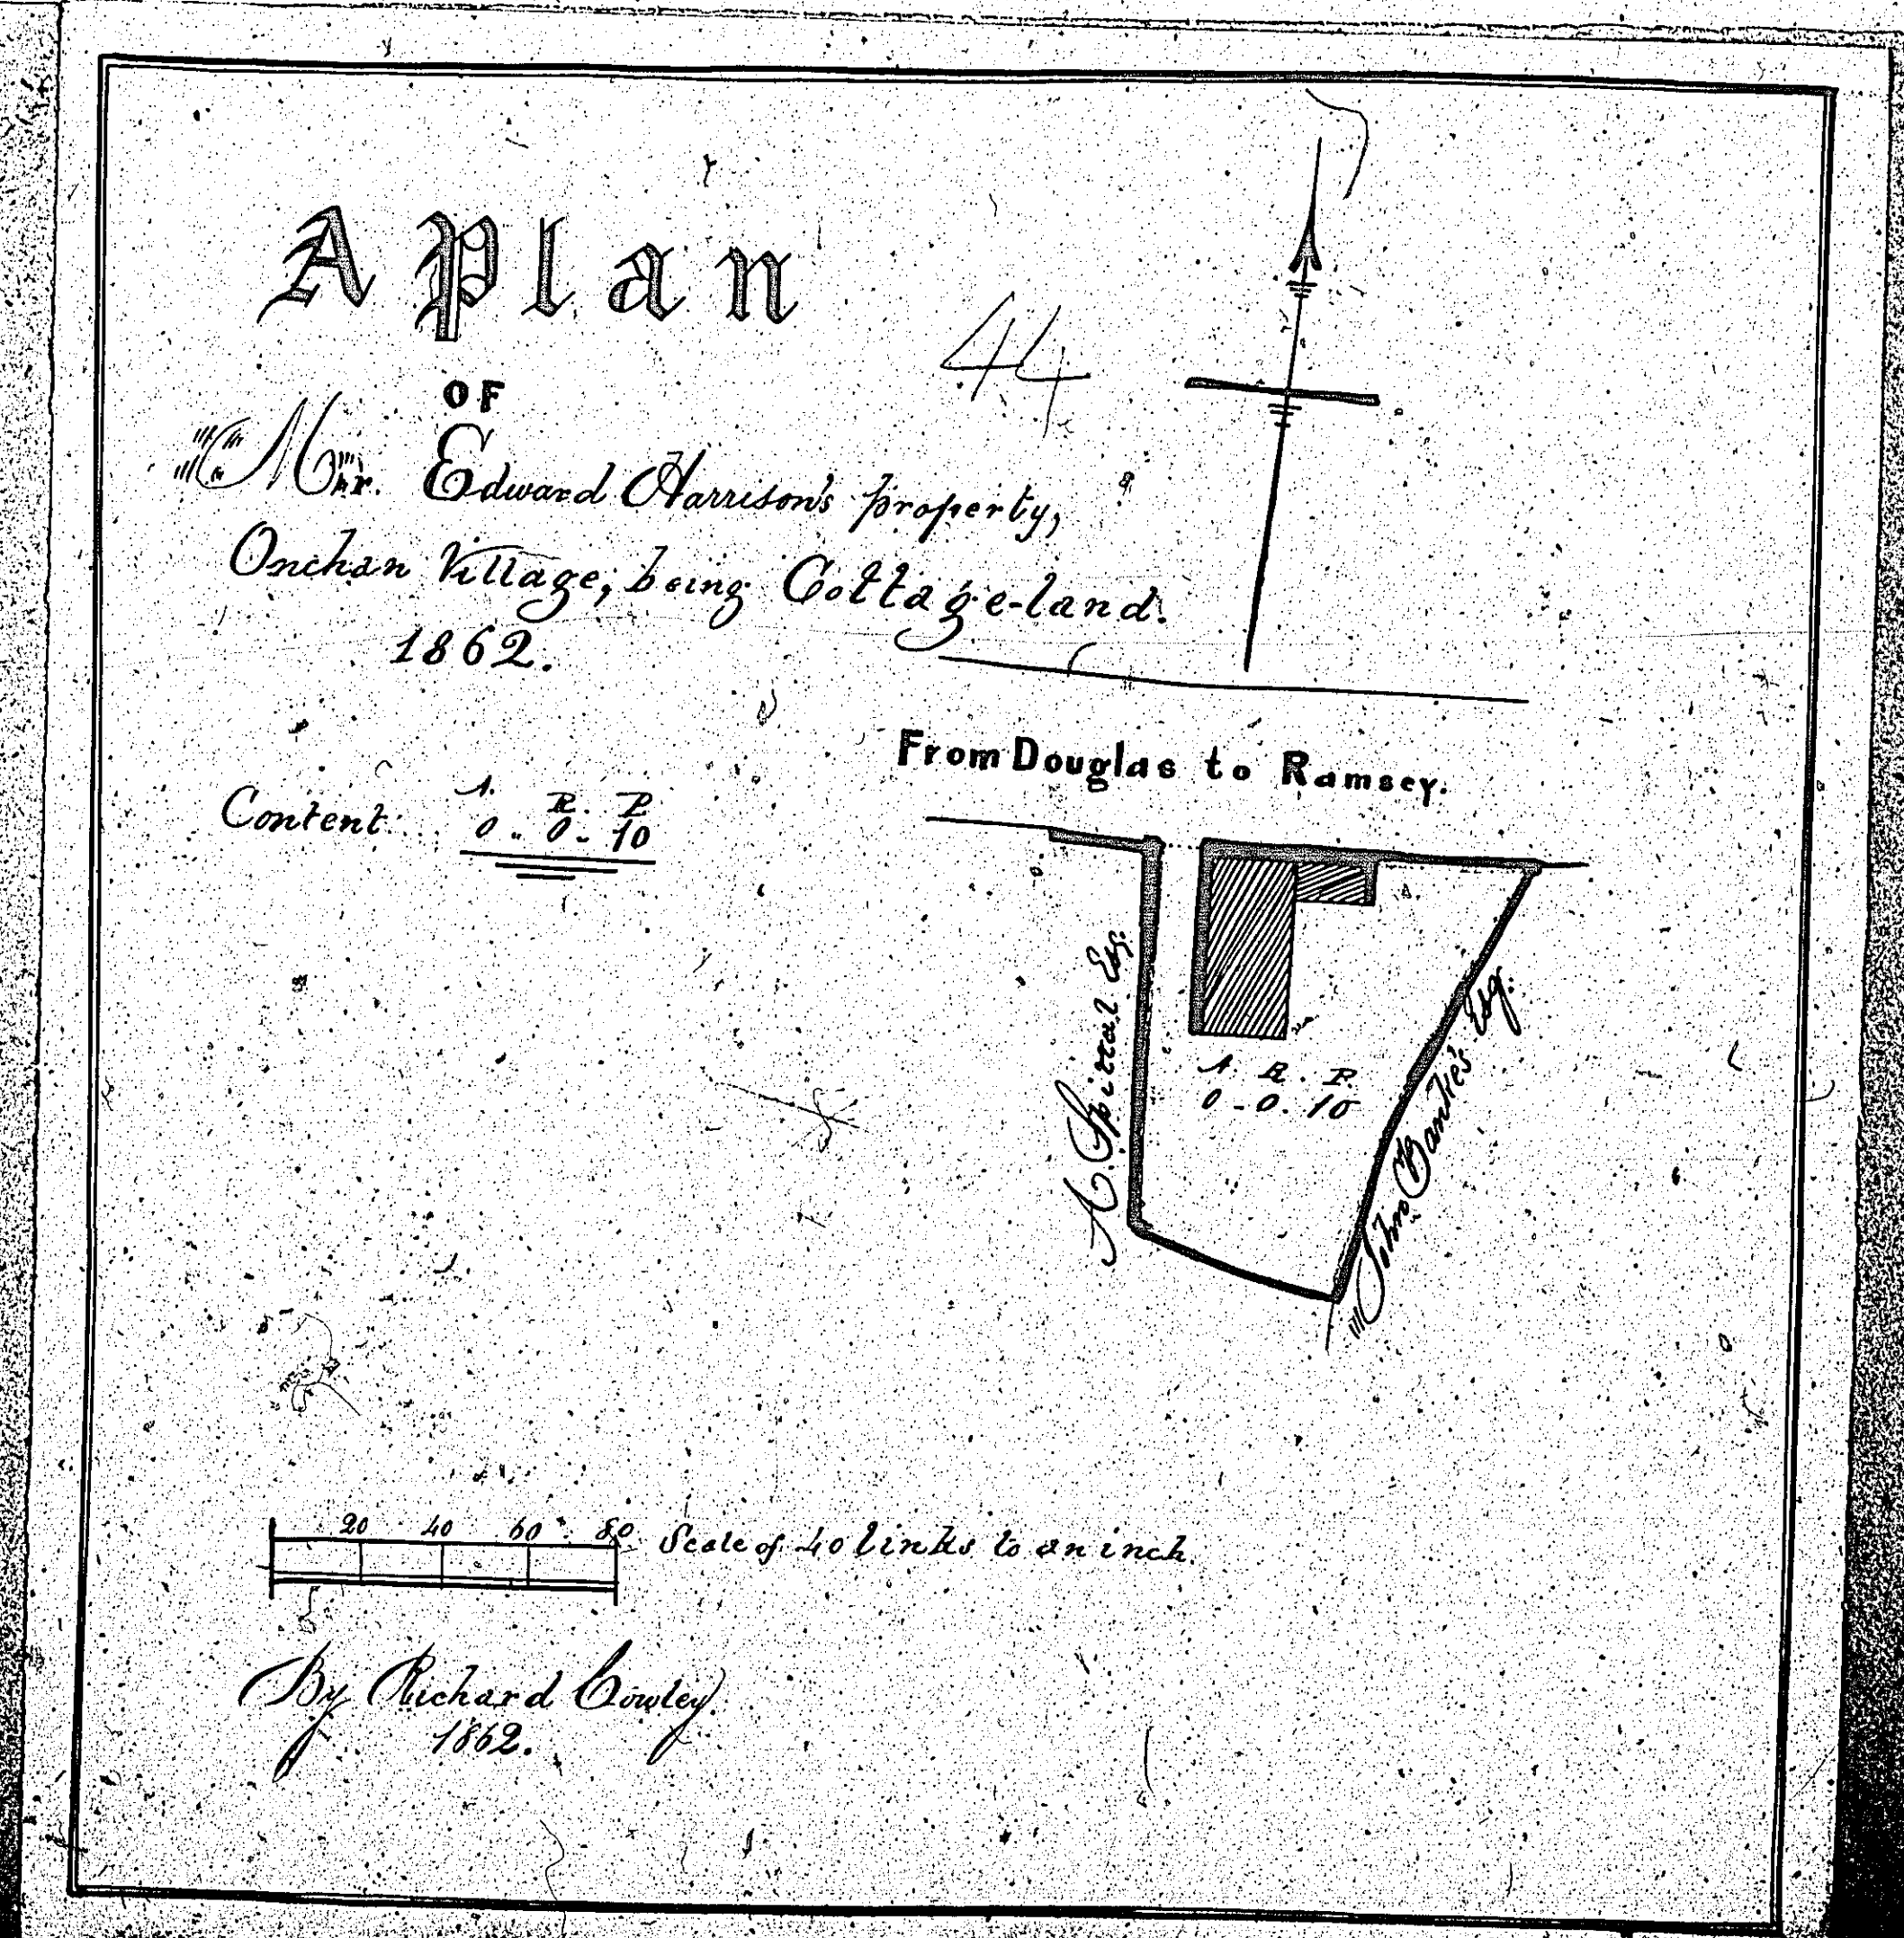 A Plan
44
OF
Mr. Edward Harrison's property,
Onchan Village, being Cottage-land.
1862.
From Douglas to Ramsey.
Content A. R. P
0 - 0 - 10
A. Spittal Esq.
A. R. P.
0 - 0 - 10
John Bankes Esq.
20 40 60 80 Scale of 40 links to an inch.
By Richard Cowley.
1862.